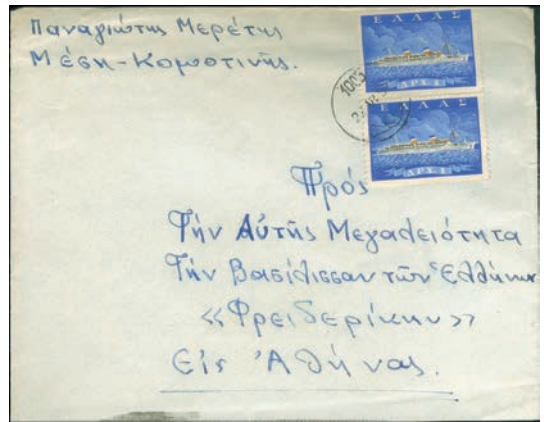 Παναγιώτης Μερέτης
Μέση-Κομοτινῆς.
ΕΛΛΑΣ
ΔΡΧ. 1
ΕΛΛΑΣ
ΔΡΧ. 1
Πρός
Τήν Αὐτῆς Μεγαλειότητα
Τήν Βασίλισσαν τῶν Ἑλλήνων
«Φρειδερίκην»
Εἰς Ἀθήνας.